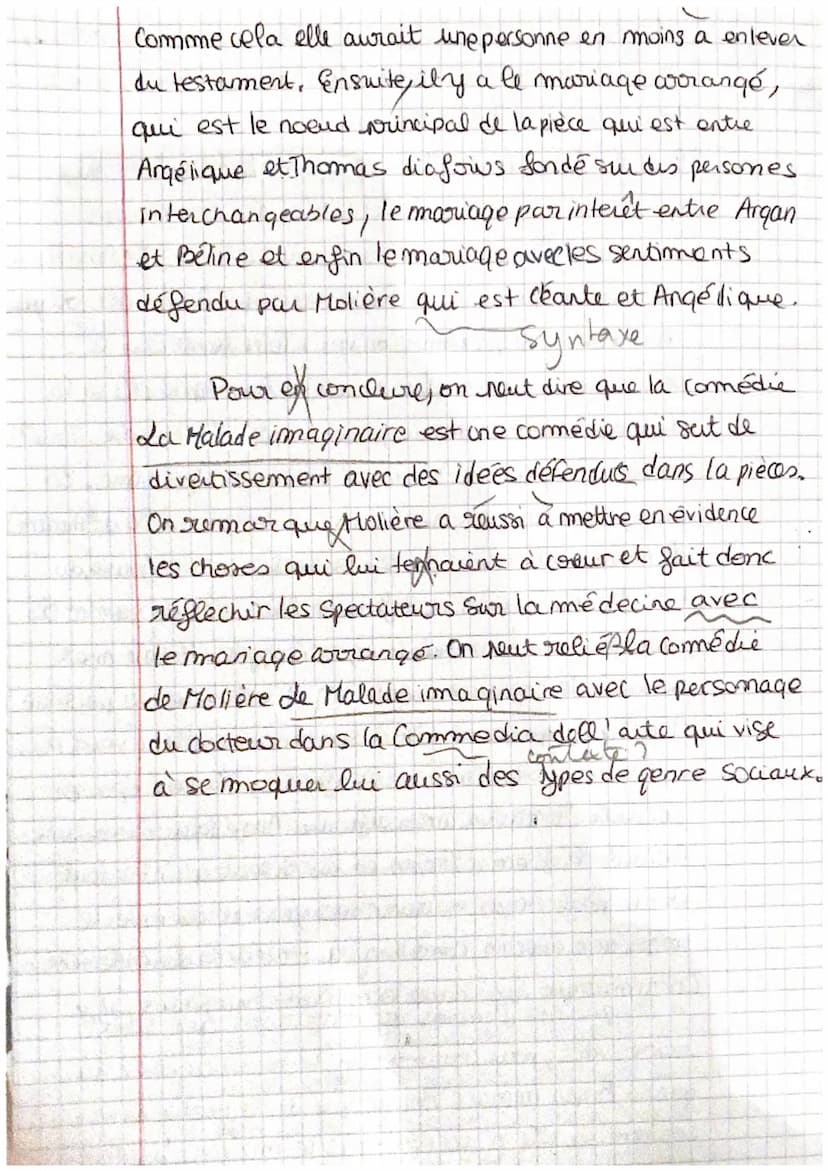 Comme cela elle aurait une personne en moins à enlever
du testament. Ensuite, il y a le mariage arrangé,
qui est le noeud principal de la pièce qui est entre
Angélique et Thomas diafoirus fondé sur des persones
interchangeables, le mariage par interêt entre Argan
et Béline et enfin le mariage avec les sentiments
défendu par Molière qui est Cléante et Angélique.
Syntaxe
Pour en conclure, on peut dire que la comédie
Le Malade imaginaire est une comédie qui sert de
divertissement avec des idées défendus dans la pièces.
On remarque Molière a réussi à mettre en évidence
les choses qui lui tenaient à coeur et fait donc
réflechir les spectateurs sur la médecine avec
le mariage arrangé. On peut relié la comédie
de Molière Le Malade imaginaire avec le personnage
du docteur dans la Commedia dell'arte qui vise
contexte ?
à se moquer lui aussi des types de genre sociaux.